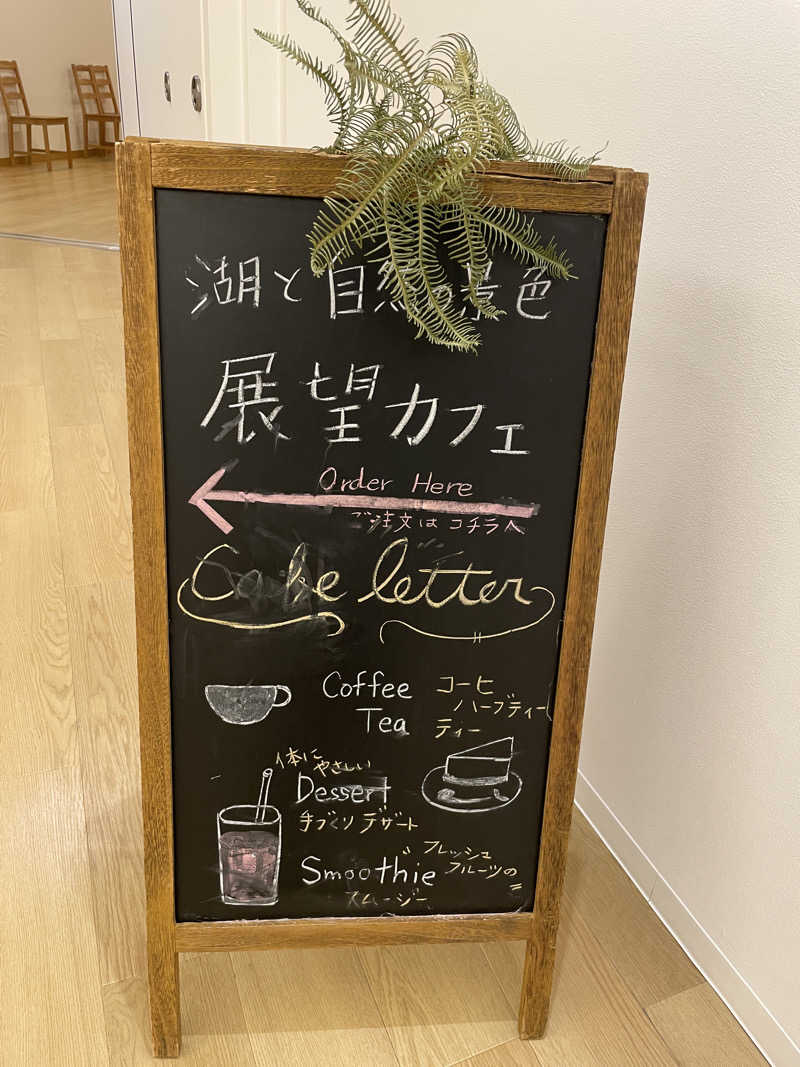 湖と自然の景色
展望カフェ
Order Here
ご注文はコチラへ
Cake letter
Coffee コーヒ
ハーブティー
Tea ティー
体に
やさしい
Dessert
手づくりデザート
フレッシュ
Smoothie フルーツの
スムージー